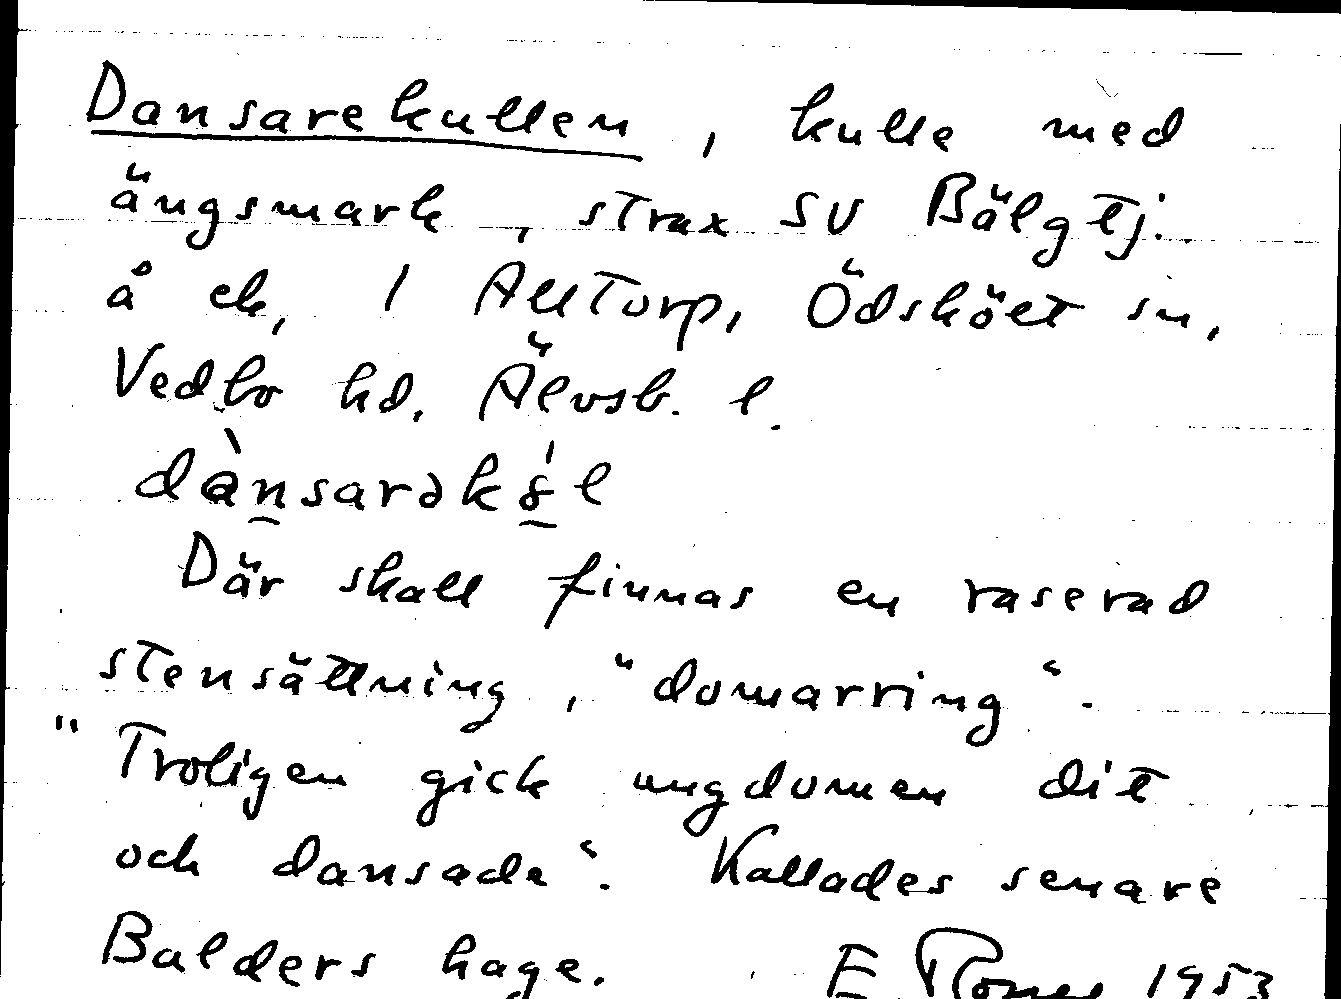 Dansarekullen, kulle med
ängsmark, strax SV Bälgtj.
å ek, I Alltorp, Ödskölt sn,
Vedbo hd. Älvsb. l.
Där skall finnas en raserad
stensättning, "domarring".
"Troligen gick ungdomen dit
och dansade". Kallades senare
Balders hage. E 1953